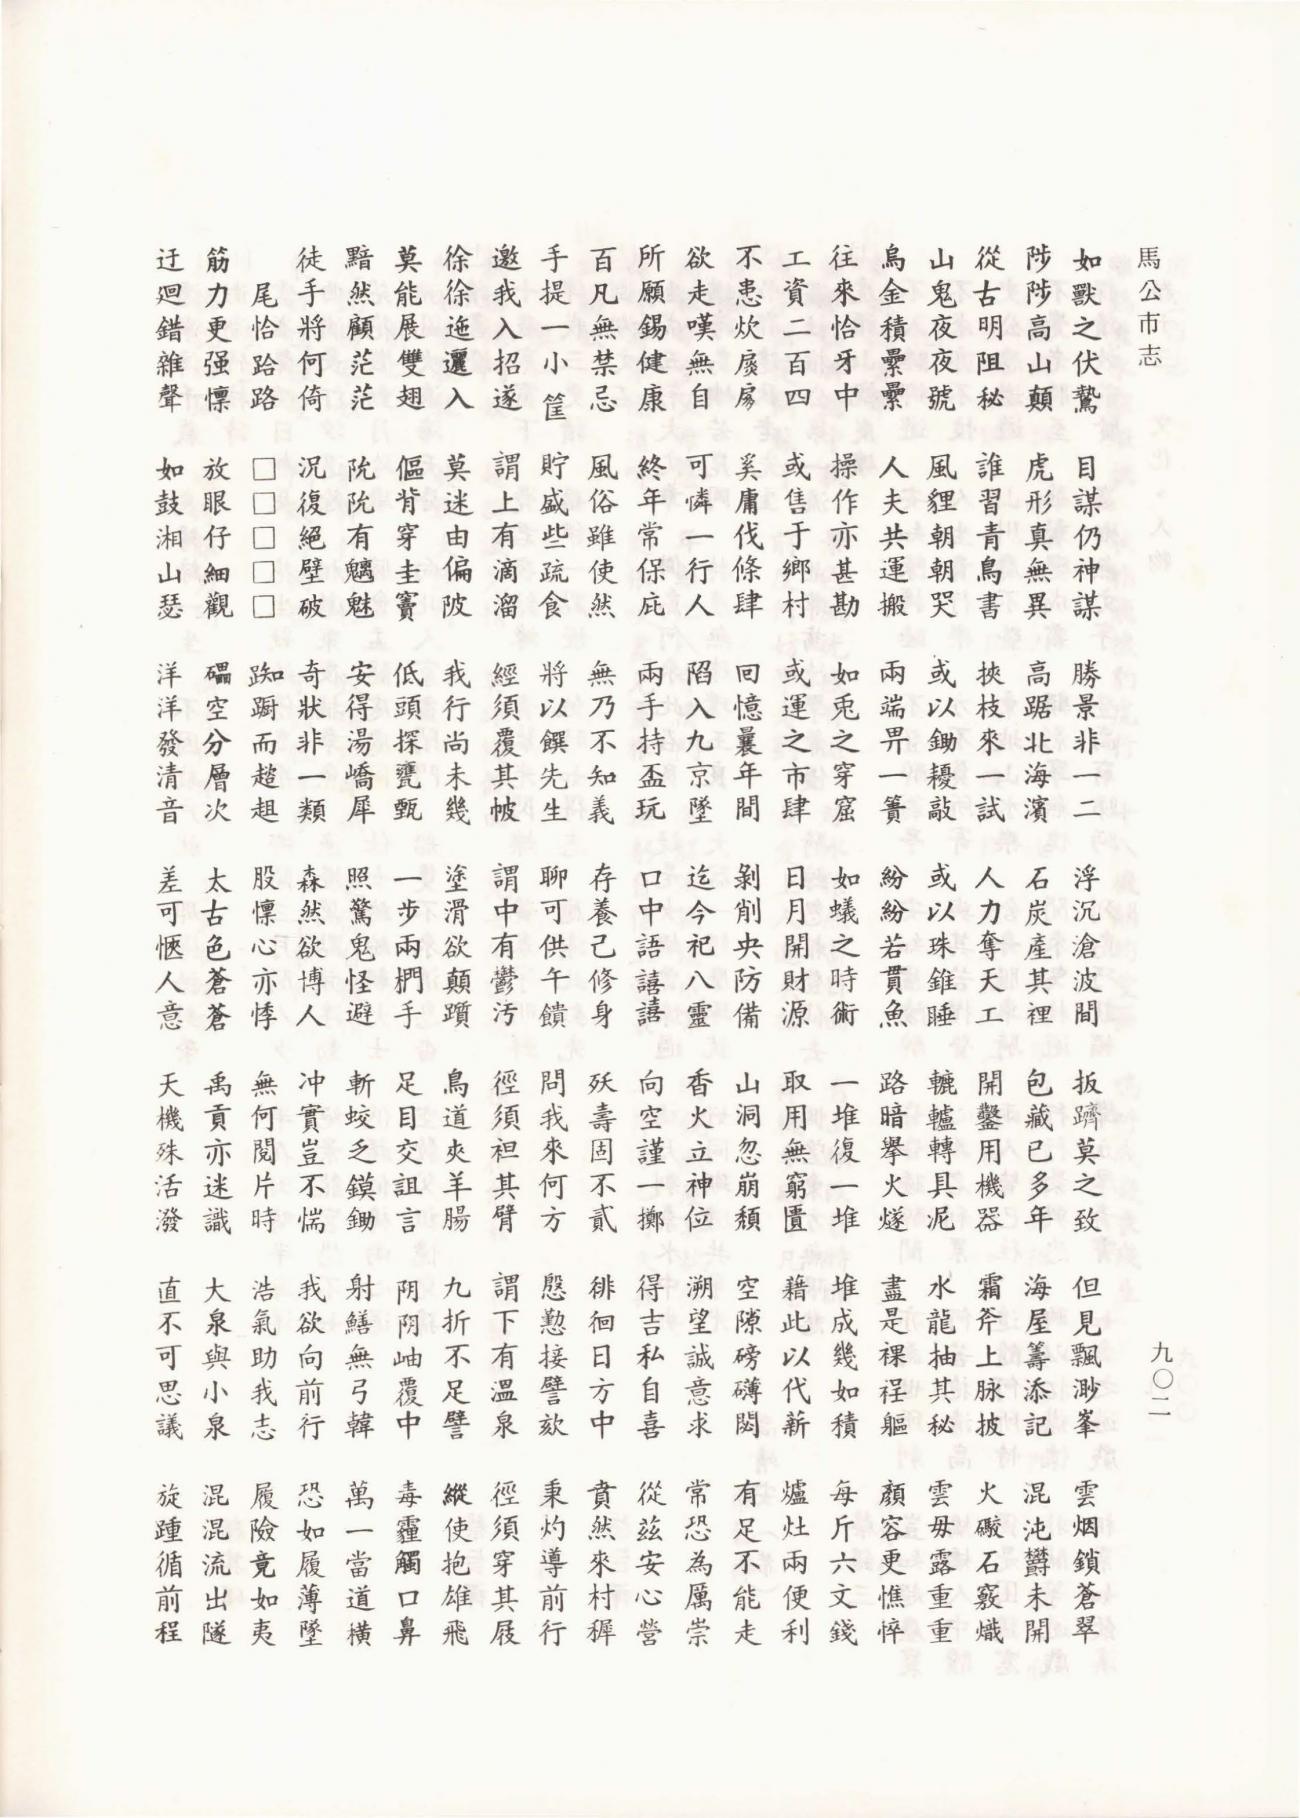 馬公市志
九〇二
如獸之伏驇　目謀仍神謀　勝景非一二　浮沉滄波間　扳躋莫之致　但見飄渺峯　雲烟鎖蒼翠
陟陟高山顛　虎形真無異　高踞北海濱　石炭產其裡　包藏已多年　海屋籌添記　混沌欝未開
從古明阻秘　誰習青鳥書　挾枝來一試　人力奪天工　開鑿用機器　霜斧上脉披　火礮石竅熾
山鬼夜夜號　風貍朝朝哭　或以鋤耰敲　或以珠錐睡　轆轤轉具泥　水龍抽其秘　雲毋露重重
烏金積纍纍　人夫共運搬　兩端畀一簣　紛紛若貫魚　路暗擧火燧　盡是裸裎軀　顏容更憔悴
往來恰牙中　操作亦甚勘　如兎之穿窟　如蟻之時術　一堆復一堆　堆成幾如積　每斤六文錢
工資二百四　或售于鄉村　或運之市肆　日月開財源　取用無窮匱　藉此以代薪　爐灶兩便利
不患炊扊扅　奚庸伐條肆　回憶曩年間　剝削央防備　山洞忽崩頹　空隙磅礴閎　有足不能走
欲走嘆無自　可憐一行人　陷入九京墜　迄今祀八靈　香火立神位　溯望誠意求　常恐為厲崇
所願錫健康　終年常保庇　兩手持盃玩　口中語譆譆　向空謹一擲　得吉私自喜　從茲安心營
百凡無禁忌　風俗雖使然　無乃不知義　存養己修身　殀壽固不貳　徘徊日方中　賁然來村穉
手提一小筐　貯盛些疏食　將以饌先生　聊可供午饋　問我來何方　慇懃接譬欬　秉灼導前行
邀我入招遂　謂上有滴溜　經須覆其帔　謂中有鬱污　徑須袒其臂　謂下有溫泉　徑須穿其屐
徐徐迤邐入　莫迷由偏陂　我行尚未幾　塗滑欲顛躓　鳥道夾羊腸　九折不足譬　縱使抱雄飛
莫能展雙翅　傴背穿圭竇　低頭探甕甀　一步兩捫手　足目交詛言　阴阴岫覆中　毒霾觸口鼻
黯然顧茫茫　阬阬有魑魅　安得湯嶠犀　照驚鬼怪避　斬蛟乏鏌鋤　射鱔無弓韓　萬一當道橫
徒手將何倚　沉復絕壁破　奇狀非一類　森然欲博人　冲實豈不惴　我欲向前行　恐如履薄墜
尾恰跲路　□□□□□　踟躕而趦趄　股懍心亦悸　無何閱片時　浩氣助我志　履險竟如夷
筋力更强懍　放眼仔細觀　礧空分層次　太古色蒼蒼　禹貢亦迷識　大泉與小泉　混混流出隧
迂廻錯雜聲　如鼓湘山瑟　洋洋發清音　差可愜人意　天機殊活潑　直不可思議　旋踵循前程